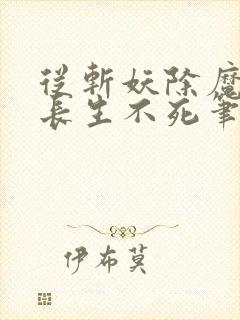 從斬妖除魔
長生不死筆
伊布莫